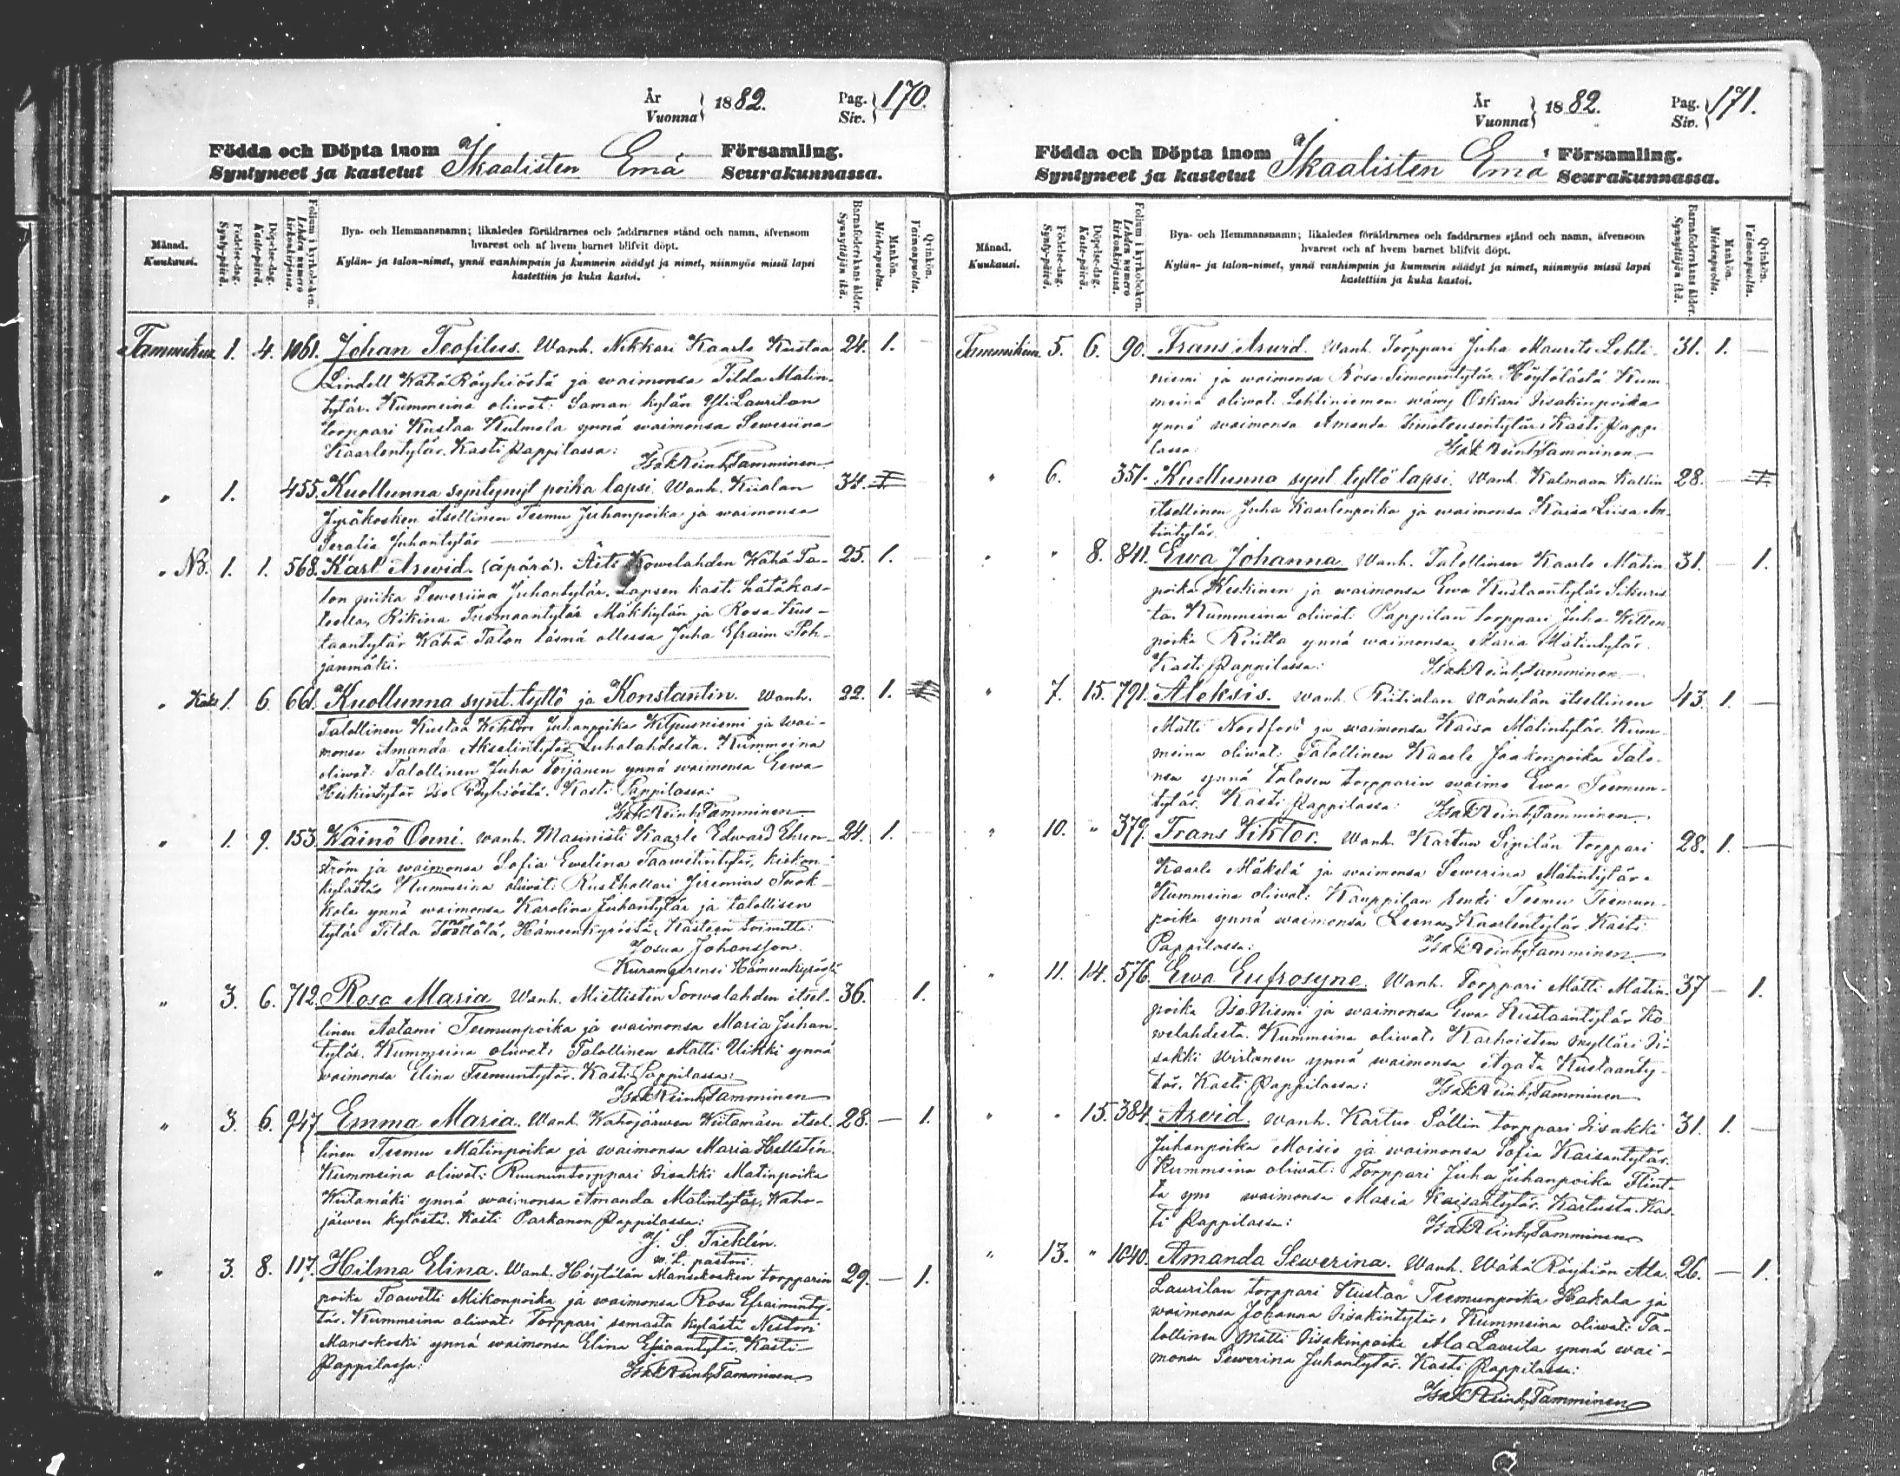 År
Vuonna } 1882.
Pag.
Siv. } 170.
Födda och Döpta inom
Syntyneet ja kastetut Ikaalisten Emä Församling.
Seurakunnassa.
Månad.
Kuukausi.
Födelse-dag.
Synty-päivä.
Döpelse-dag.
Kaste-päivä.
Folium i kyrkoboken.
Lehden numero kirkonkirjassa.
Bya- och Hemmansnamn; likaledes föräldrarnes och faddrarnes stånd och namn, äfvensom
hvarest och af hvem barnet blifvit döpt.
Kylän- ja talon-nimet, ynnä vanhimpain ja kummein säädyt ja nimet, niinmyös missä lapsi
kastettiin ja kuka kastoi.
Barnaföderskans ålder.
Synnyttäjän ikä.
Mankön.
Miehenpuolta.
Qvinkön.
Vaimonpuolta.
Tammikuu 1. 4. 1061. Johan Teofilus. Wanh. Nikkari Kaarle Kustaa 24. 1. —
Lindell Wähä Röyhiöstä ja waimonsa Tilda Matin-
tytär. Kummeina oliwat: Saman kylän Yli Laurilan
torppari Kustaa Kulmala ynnä waimonsa Seweriina
Kaarlentytär. Kasti Pappilassa:
Isak Reinh. Tamminen
„ 1. 455. Kuollunna syntynyt poika lapsi. Wanh. Kialan 34. 1.
Jyräkosken itsellinen Teemu Juhanpoika ja waimonsa
Seralia Juhantytär
„ NB. 1. 1. 568. Karl Arwid. (äpärä). Äiti Kowelahden Wähä Ta- 25. 1. —
lon piika Seweriina Juhantytär. Lapsen kasti hätäkas-
teella, Rikina Tuomaantytär Mäkkylän ja Rosa Kus-
taantytär Wähä Talon läsnä ollessa Juha Efraim Poh-
janmäki.
„ Kaks 1. 6. 661. Kuollunna synt. tyttö ja Konstantin. Wanh. 22. 1.
Talollinen Kustaa Wihtori Juhanpoika Wilpusniemi ja wai-
monsa Amanda Akselintytär Luhalahdesta. Kummeina
oliwat: Talollinen Juha Toijanen ynnä waimonsa Eewa
Heikintytär Iso Röyhiöstä. Kasti Pappilassa:
Isak Reinh. Tamminen
„ 1. 9. 153. Wäinö Onni. Wanh. Masinisti Kaarle Edward Ehren- 24. 1. —
ström ja waimonsa Sofia Ewelina Taawetintytär, kirkon-
kylästä. Kummeina oliwat: Rusthollari Jeremias Tuok-
kola ynnä waimonsa Karolina Juhantytär ja talollisen
tytär Tilda Töttölä, Hämeenkyröstä. Kasteen toimitti:
Josua Johansson.
Hämeenkyröstä
„ 3. 6. 712. Rosa Maria. Wanh. Miettisten Sorwalahden itsel- 36. — 1.
linen Aatami Teemunpoika ja waimonsa Maria Juhan-
tytär. Kummeina oliwat: Talollinen Matti Uikki ynnä
waimonsa Elina Teemuntytär. Kasti Pappilassa:
Isak Reinh. Tamminen
„ 3. 6. 947. Emma Maria. Wanh. Wahojärwen Wiitamäen itsel- 28. — 1.
linen Teemu Matinpoika ja waimonsa Maria Hellstén.
Kummeina oliwat: Ruununtorppari Iisakki Matinpoika
Wiitamäki ynnä waimonsa Amanda Matintytär, Waho-
järwen kylästä. Kasti Parkanon Pappilassa:
J. S. Ticklén.
v. t. pastori
„ 3. 8. 117. Hilma Elina. Wanh. Höytölän Mansokosken torpparin 29. — 1.
poika Taawetti Mikonpoika ja waimonsa Rosa Efraiminty-
tär. Kummeina oliwat: Torppari samasta kylästä Nestori
Mansokoski ynnä waimonsa Elina Esaiantytär. Kasti
Pappilassa:
Isak Reinh. Tamminen
År
Vuonna } 1882.
Pag.
Siv. } 171.
Födda och Döpta inom
Syntyneet ja kastetut Ikaalisten Emä Församling.
Seurakunnassa.
Månad.
Kuukausi.
Födelse-dag.
Synty-päivä.
Döpelse-dag.
Kaste-päivä.
Folium i kyrkoboken.
Lehden numero kirkonkirjassa.
Bya- och Hemmansnamn; likaledes föräldrarnes och faddrarnes stånd och namn, äfvensom
hvarest och af hvem barnet blifvit döpt.
Kylän- ja talon-nimet, ynnä vanhimpain ja kummein säädyt ja nimet, niinmyös missä lapsi
kastettiin ja kuka kastoi.
Barnaföderskans ålder.
Synnyttäjän ikä.
Mankön.
Miehenpuolta.
Qvinkön.
Vaimonpuolta.
Tammikuu 5. 6. 90. Frans Arwid. Wanh. Torppari Juha Maurits Lehti- 31. 1. —
niemi ja waimonsa Rosa Simonintytär Höytölästä. Kum-
meina oliwat: Lehtiniemen wäwy Oskari Iisakinpoika
ynnä waimonsa Amanda Timoteuksentytär. Kasti Pappi-
lassa:
Isak Reinh. Tamminen
„ 6. 351. Kuollunna synt. tyttö lapsi. Wanh. Kalmaan Kallin 28. — 1.
itsellinen Juha Kaarlenpoika ja waimonsa Kaisa Liisa An-
tintytär.
„ „ 8. 841. Ewa Johanna. Wanh. Talollinen Kaarle Matin- 31. — 1.
poika Keskinen ja waimonsa Ewa Kustaantytär Sikuris-
ta. Kummeina oliwat: Pappilan torppari Juha
poika Riutta ynnä waimonsa Maria Matintytär.
Kasti Pappilassa:
Isak Reinh. Tamminen
„ 7. 15. 791. Aleksis. Wanh. Riitialan Wänsilän itsellinen 43. 1. —
Matti Nordfors ja waimonsa Kaisa Matintytär. Kum-
meina oliwat: Talollinen Kaarle Jaakonpoika Talo-
nen ynnä Talosen torpparin waimo Ewa Teemun-
tytär. Kasti Pappilassa:
Isak Reinh. Tamminen.
„ 10. „ 379. Frans Viktor. Wanh. Kartun Sipilän torppari 28. 1. —
Kaarle Mäkelä ja waimonsa Sewerina Matintytär.
Kummeina oliwat: Kauppilan renki Teemu Teemun-
poika ynnä waimonsa Leena Kaarlentytär. Kasti
Pappilassa:
Isak Reinh. Tamminen
„ 11. 14. 576. Ewa Eufrosyne. Wanh. Torppari Matti Matin- 37 — 1.
poika Iso Niemi ja waimonsa Ewa Kustaantytär Ko-
welahdesta. Kummeina oliwat: Karhoisten mylläri Ii-
sakki Wirtanen ynnä waimonsa Agata Kustaanty-
tär. Kasti Pappilassa:
Isak Reinh. Tamminen
„ „ 15. 384. Arvid. Wanh. Kartun Pällin torppari Iisakki 31. 1. —
Juhanpoika Moisio ja waimonsa Sofia Kaisantytär.
Kummeina oliwat: Torppari Juha Juhanpoika Flint-
ta ynnä waimonsa Maria Kaisantytär Kartusta. Kas-
ti Pappilassa:
Isak Reinh. Tamminen
„ 13. „ 1040. Amanda Sewerina. Wanh. Wähä Röyhiön Ala 26. — 1.
Laurilan torppari Kustaa Teemunpoika Hakala ja
waimonsa Johanna Iisakintytär. Kummeina oliwat: Ta-
lollinen Matti Iisakinpoika Ala Laurila ynnä wai-
monsa Sewerina Juhantytär. Kasti Pappilassa:
Isak Reinh. Tamminen